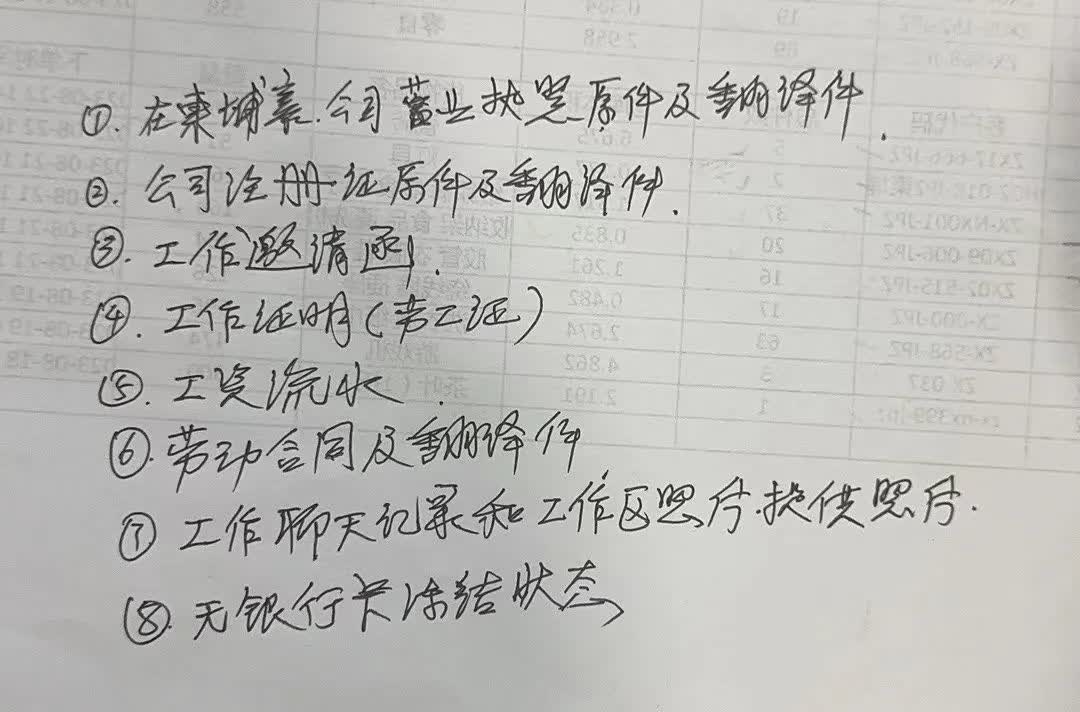 ①. 在柬埔寨.公司营业执照原件及翻译件.
②. 公司注册证原件及翻译件.
③. 工作邀请函.
④. 工作证明(劳工证)
⑤. 工资流水.
⑥. 劳动合同及翻译件
⑦ 工作聊天记录和工作区照片.提供照片.
⑧. 无银行卡冻结状态